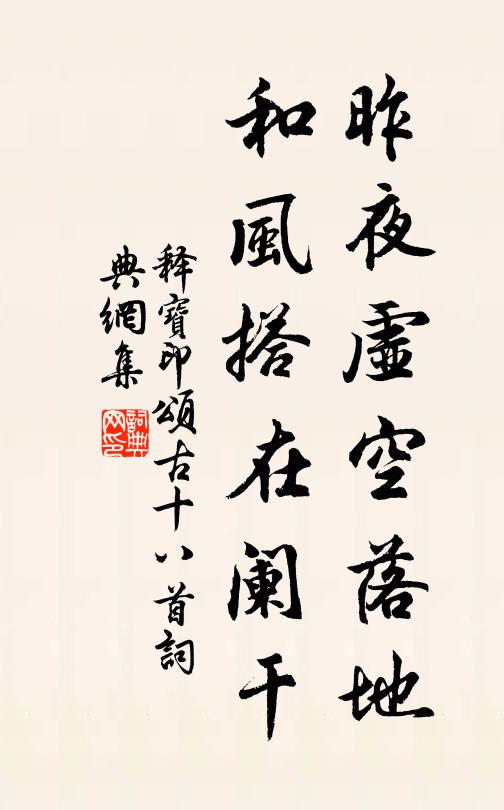 昨夜虛空落地
和風搭在阑干
释寶印頌古十八首詞
典網集
詞典網印